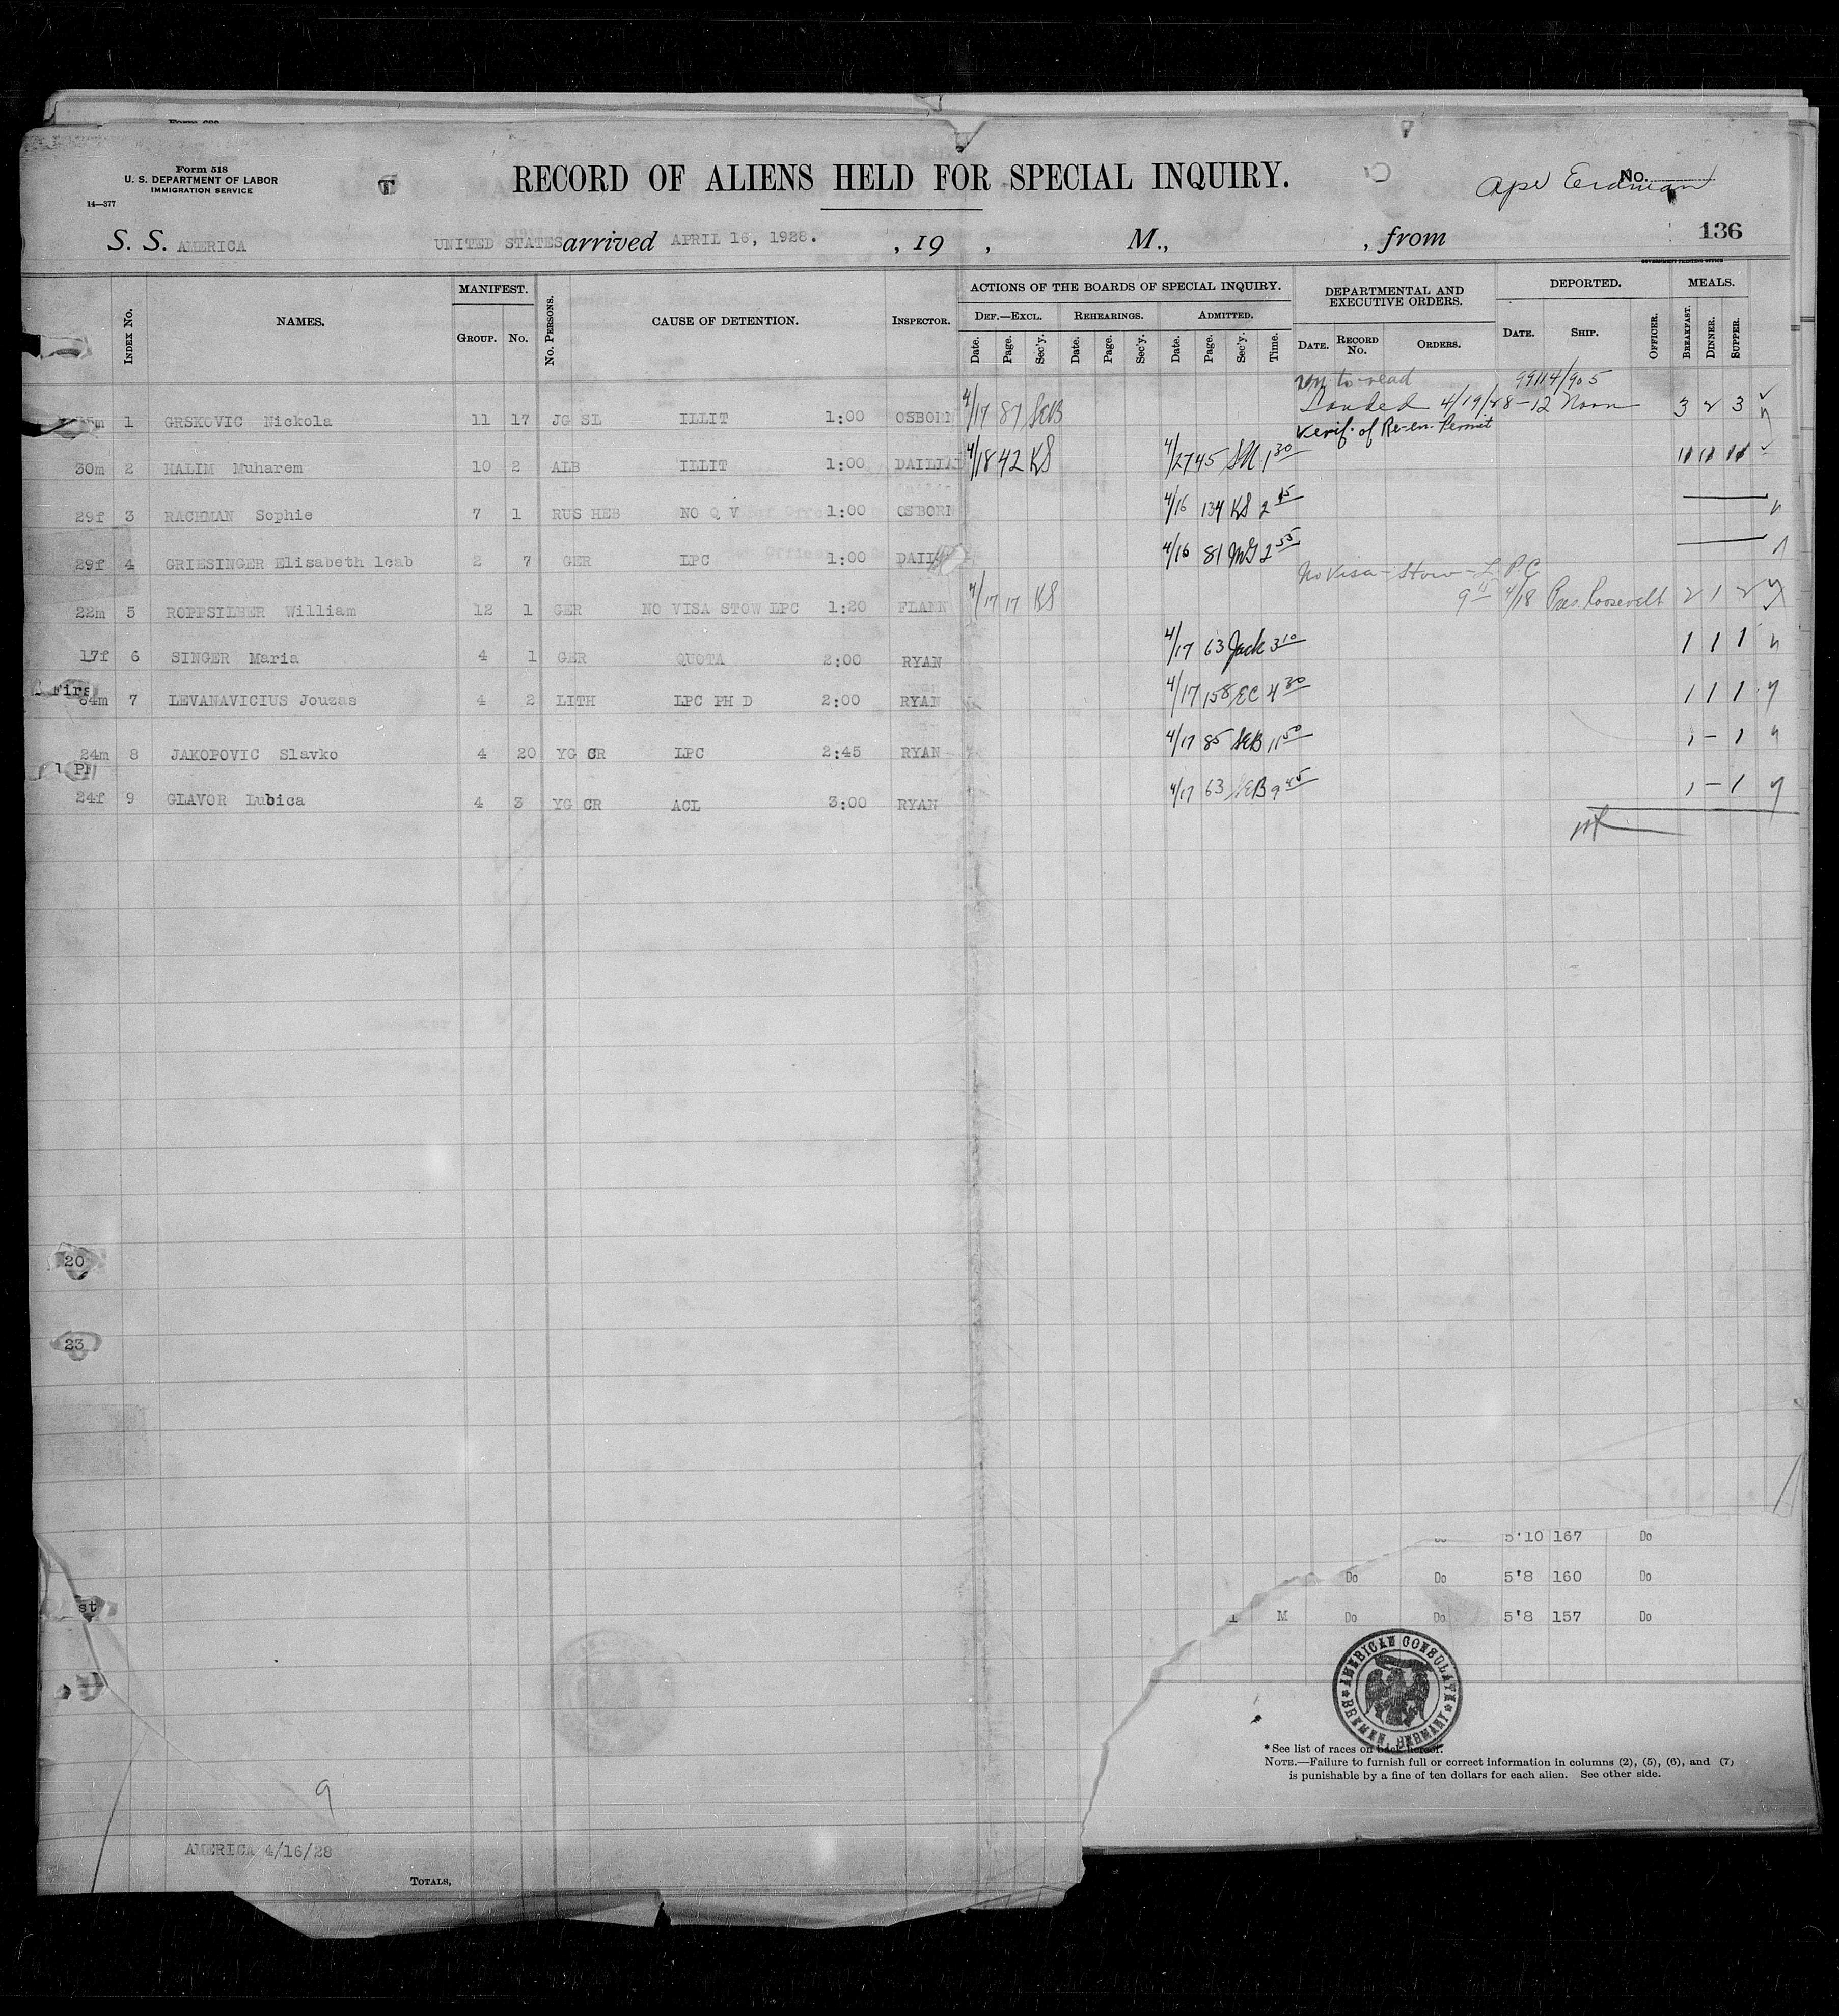 Form 518
U. S. DEPARTMENT OF LABOR
IMMIGRATION SERVICE
14—377
T
RECORD OF ALIENS HELD FOR SPECIAL INQUIRY.
No.
136
S. S. AMERICA UNITED STATES arrived APRIL 16, 1928. , 19 , M., , from
GOVERNMENT PRINTING OFFICE
Index No. NAMES. MANIFEST. Group. No. No. Persons. CAUSE OF DETENTION. Inspector. ACTIONS OF THE BOARDS OF SPECIAL INQUIRY. Def.—Excl. Date. Page. Sec'y. Rehearings. Date. Page. Sec'y. Admitted. Date. Page. Sec'y. Time. DEPARTMENTAL AND EXECUTIVE ORDERS. Date. Record No. Orders. DEPORTED. Date. Ship. Officer. MEALS. Breakfast. Dinner. Supper.
to read 99114/905
Landed 4/19/28-12 Noon
1 GRSKOVIC Nickola 11 17 JG SL ILLIT 1:00 OSBORN 4/17 87 SEB 3 2 3
Verif. of Re-en. Permit
30m 2 HALIM Muharem 10 2 ALB ILLIT 1:00 DAILIA 4/18 42 KS 4/27 45 SM 1 30 11 11 11
29f 3 RACHMAN Sophie 7 1 RUS HEB NO Q V 1:00 OSBORN 4/16 134 KS 2 45
29f 4 GRIESINGER Elisabeth lcab 2 7 GER LPC 1:00 DAIL 4/16 81 2 55
No Visa - Stow - L.P.C
22m 5 ROPPSILBER William 12 1 GER NO VISA STOW LPC 1:20 FLANN 4/17 17 KS 4/18 Pres. Roosevelt 2 1 2
17f 6 SINGER Maria 4 1 GER QUOTA 2:00 RYAN 4/17 63 Jack 3 10 1 1 1
Firs
64m 7 LEVANAVICIUS Jouzas 4 2 LITH LPC PH D 2:00 RYAN 4/17 158 EC 4 30 1 1 1
24m 8 JAKOPOVIC Slavko 4 20 YG CR LPC 2:45 RYAN 4/17 85 SEB 11 50 1 - 1
24f 9 GLAVOR Lubica 4 3 YG CR ACL 3:00 RYAN 4/17 63 SEB 9 45 1 - 1
20
23
5'10 167 Do
Do Do 5'8 160 Do
st
M Do Do 5'8 157 Do
AMERICAN CONSULATE
BREMEN, GERMANY
* See list of races on back hereof.
NOTE.—Failure to furnish full or correct information in columns (2), (5), (6), and (7)
is punishable by a fine of ten dollars for each alien. See other side.
9
AMERICA 4/16/28
Totals,